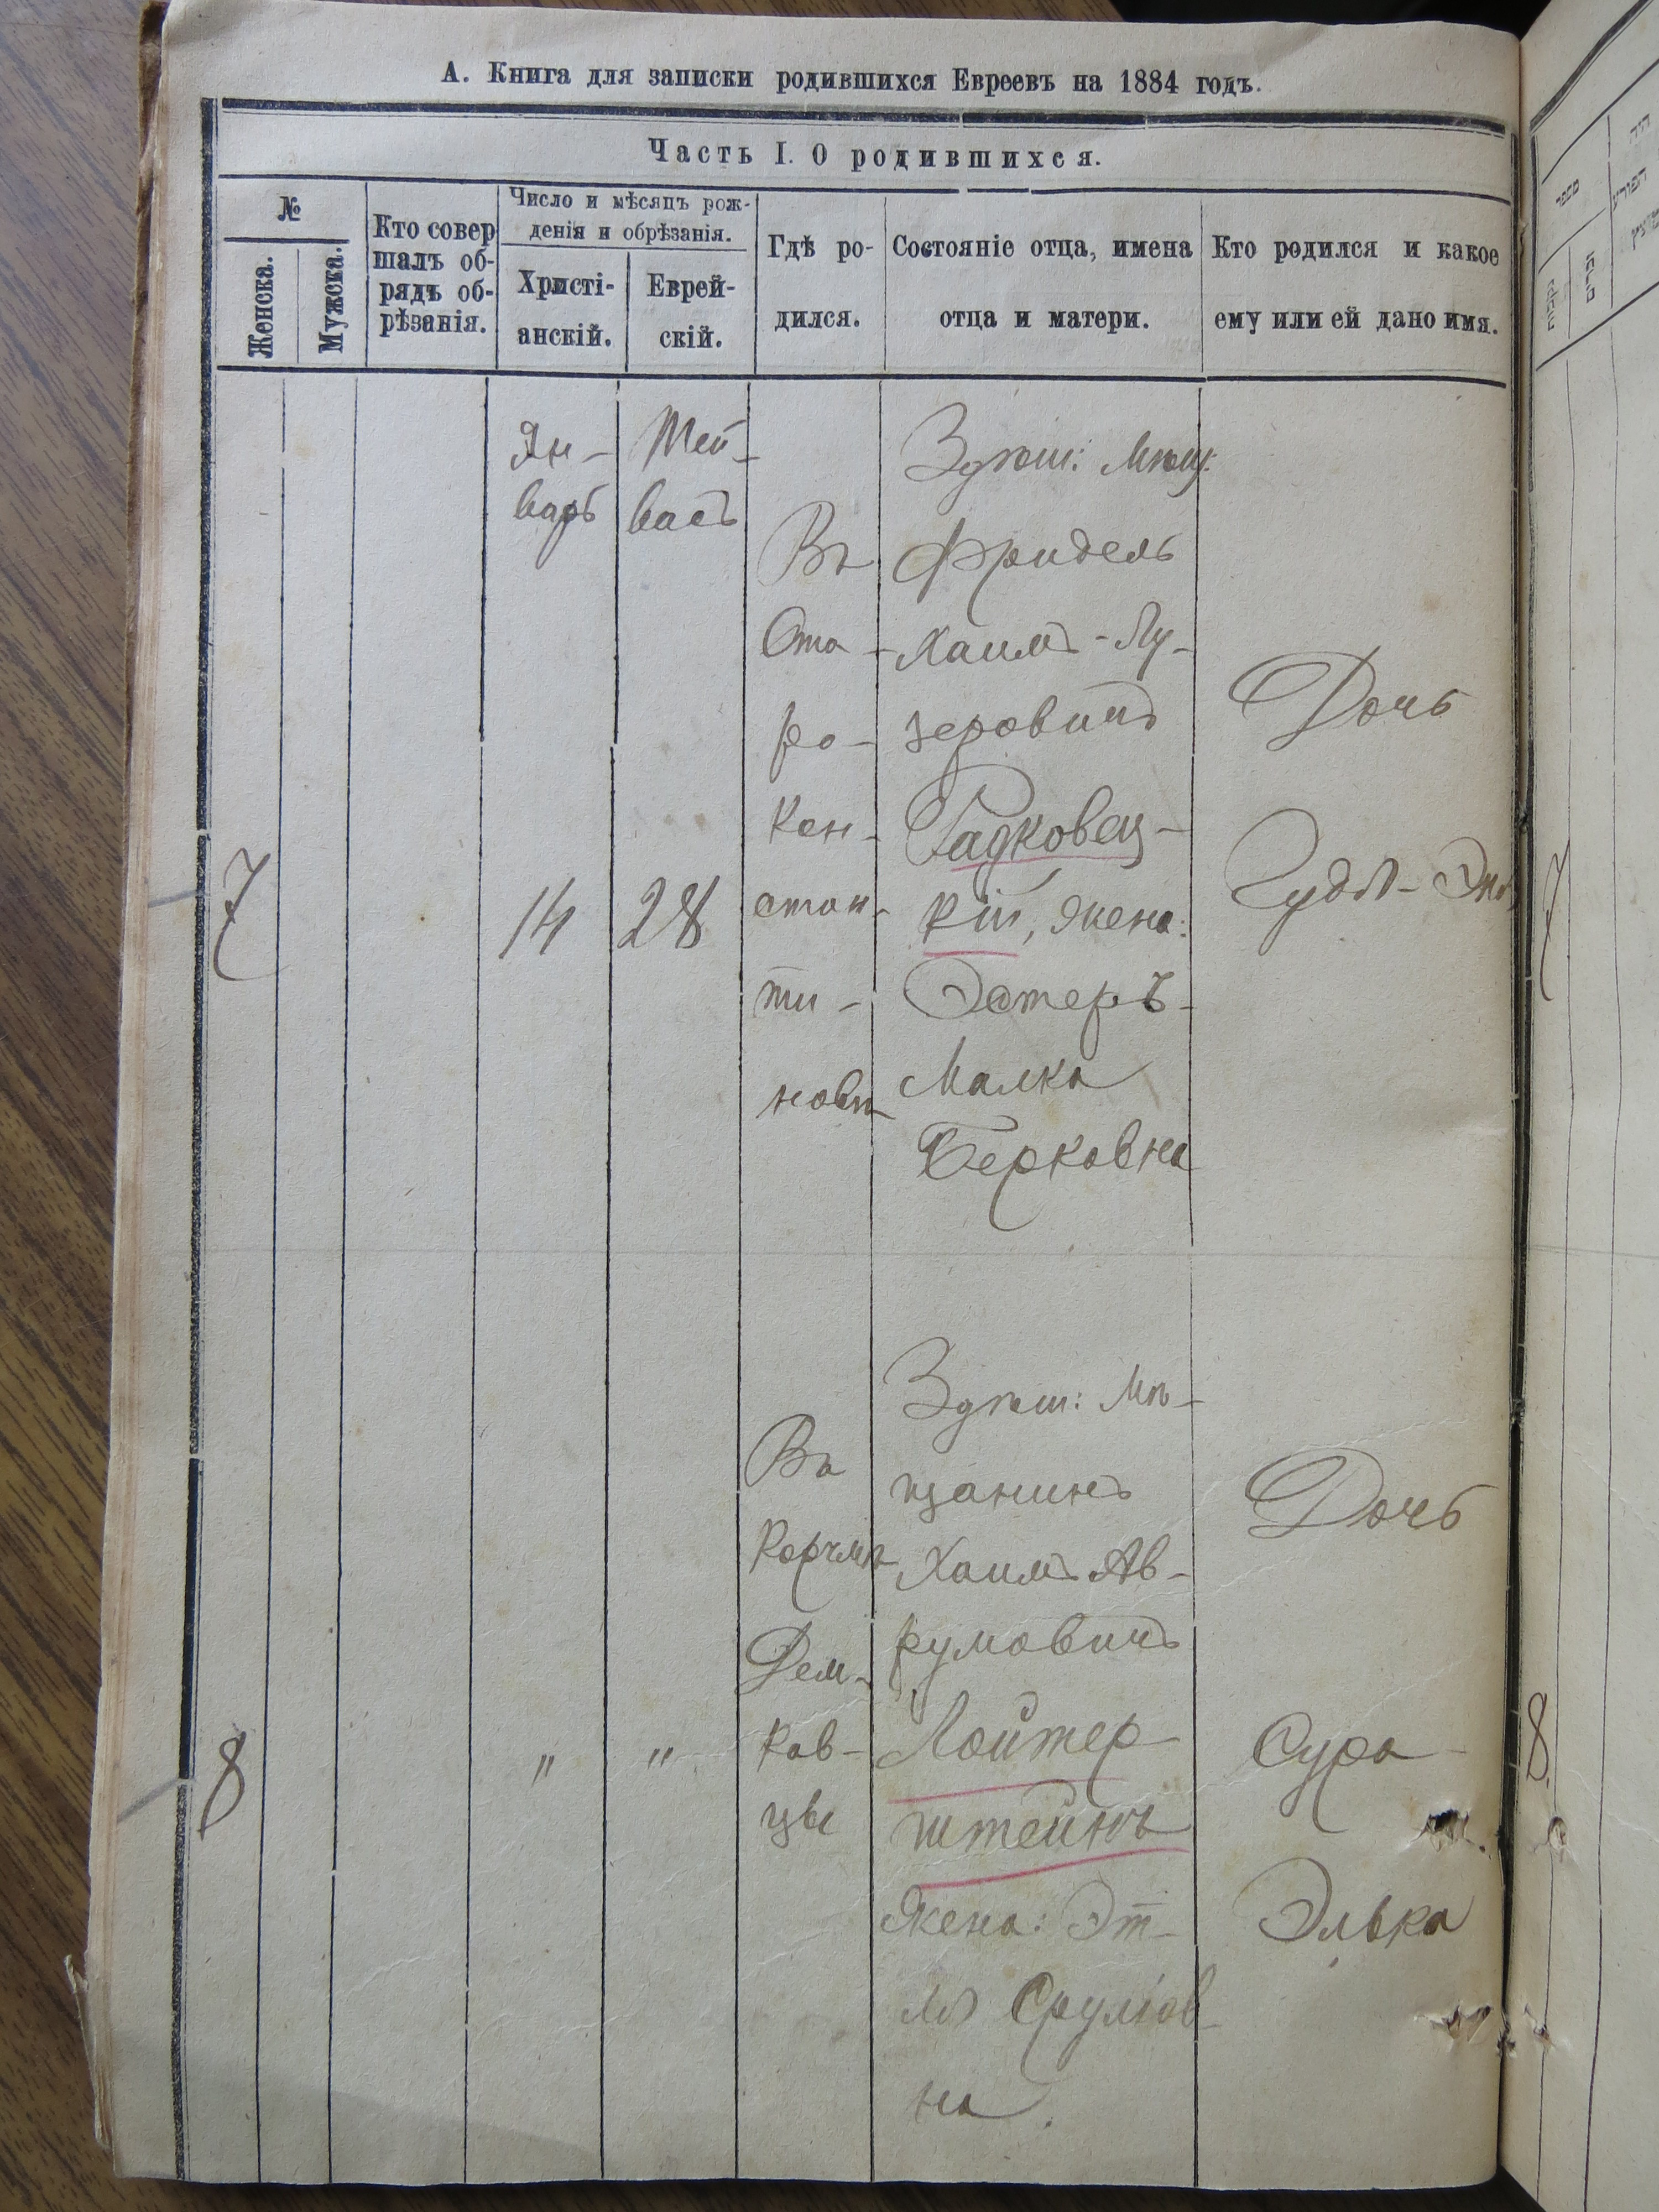 А. Книга для записки родившихся Евреевъ на 1884 годъ.
Часть I. О родившихся.
№
Женска.
Мужска.
Кто совер
шалъ об-
рядъ об-
рѣзанія.
Число и мѣсяцъ рож-
денія и обрѣзанія.
Христі-
анскій.
Еврей-
скій.
Гдѣ ро-
дился.
Состояніе отца, имена
отца и матери.
Кто родился и какое
ему или ей дано имя.
7
Ян-
варь
14
Тей-
васъ
28
Въ
Ста-
ро-
Кон-
стан-
ти-
новѣ
Здѣш: Мѣщ:
Фридель
Хаимъ-Лу-
зеровичъ
Радковец-
кій, жена:
Эстеръ-
Малка
Берковна
Дочь
7
8
"
"
Въ
Корчмѣ
Дем-
ков-
цы
Здѣш: Мѣ-
щанинъ
Хаимъ Ав-
румовичъ
Лойтер-
штейнъ
Жена: Эт-
ля Срулов-
на.
Дочь
Сура-
Элька
8.